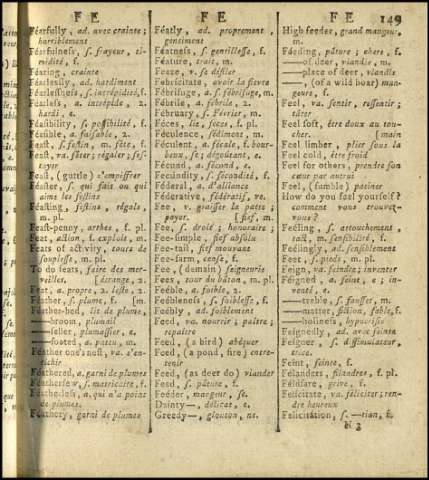 F E
F E
F E
149
Féarfully, ad. avec crainte ;
horriblement
Féarfulness, s. frayeur, timidité, f.
Féaring, crainte
Féarlessly, ad. hardiment
Féarlessness, s. intrépidité, f.
Féarless, a. intrépide, 2.
hardi, e.
Féasibility, s. possibilité, f.
Féasible, a. faisable, 2.
Feast, s. festin, m. fête, f.
Feast, va. fêter ; régaler ;
Feast, (guttle) s'empiffrer
Féaster, s. qui fait ou qui
aime les festins
Féasting, s. festins, régals,
m. pl.
Feat, action, f. exploit, m.
Feats of activity, tours de
souplesse, m. pl.
To do feats, faire des merveilles.
Feat, a. propre, 2. leste, 2.
Féather, s. plume, f.
Féather-bed, lit de plume,
—broom, plumail
—seller, plumassier, e.
—footed, a. pattu, m.
Féather one's nest, va. s'enrichir
Féathered, a. garni de plumes
Féatherless, a. qui n'a point
de plumes.
Féathery, garni de plumes
Féatly, ad. proprement,
Féatness, s. gentillesse, f.
Féature, trait, m.
Feaze, v. se défiler
Febricitate, avoir la fievre
Fébrifuge, a. s. fébrifuge, m.
Fébrile, a. fébrile, 2.
Fébruary, s. Février, m.
Féces, lie, feces, f. pl.
Féculence, sédiment, m.
Féculent, a. fécale, f. bourbeux, se ; dégoûtant, e.
Fécund, a. fécond, e.
Fecúndity, s. fécondité, f.
Féderal, a. d'alliance
Féderative, fédératif, ve.
Fee, v. graisser la patte ;
payer. { fief, m.
Fee, s. droit ; honoraire ;
Fee-simple, fief absolu
Fee-tail, fief mouvant
Fee-farm, cense, f.
Fee, (demain) seigneurie
Fees, tour du bâton, m. pl.
Féeble, a. foible, 2.
Féebleness, s. foiblesse, f.
Féebly, ad. foiblement
Feed, va. nourrir, paître ;
repaître
Feed, (a bird) abéquer
Feed, (a pond, fire) entretenir
Feed, (as deer do) viander
Feed, s. pâture, f.
Feéder, mangeur, se.
Dainty—, délicat, e.
Greedy—, glouton, ne.
High feeder, grand mangeur,
m.
Féeding, pâture ; chere, f.
—of deer, viandis, m.
—place of deer, viandis
— (of a wild boar) mangeure, f.
Feel, va. sentir, ressentir ;
tâter
Feel soft, être doux au toucher. [main
Feel limber, plier sous la
Feel cold, être froid
Feel for others, prendre son
cœur par autrui
Feel, (fumble) patiner
How do you feel yourself ?
comment vous trouvez-vous ?
Feéling, s. attouchement,
tact, m. sensibilité, f.
Feélingly, ad. sensiblement
Feet, s. pieds, m. pl.
Feign, va. feindre ; inventer
Féigned, a. feint, e ; inventé, e.
—treble, s. fausset, m.
—matter, fiction, fable, f.
—holiness, hypocrisie
Feígnedly, ad. avec feinte
Feígner, s. dissimulateur,
trice.
Feint, feinte, f.
Félanders, filandres, f. pl.
Félicitate, va. féliciter ; rendre heureux
Felicitátion, s. —tian, f.